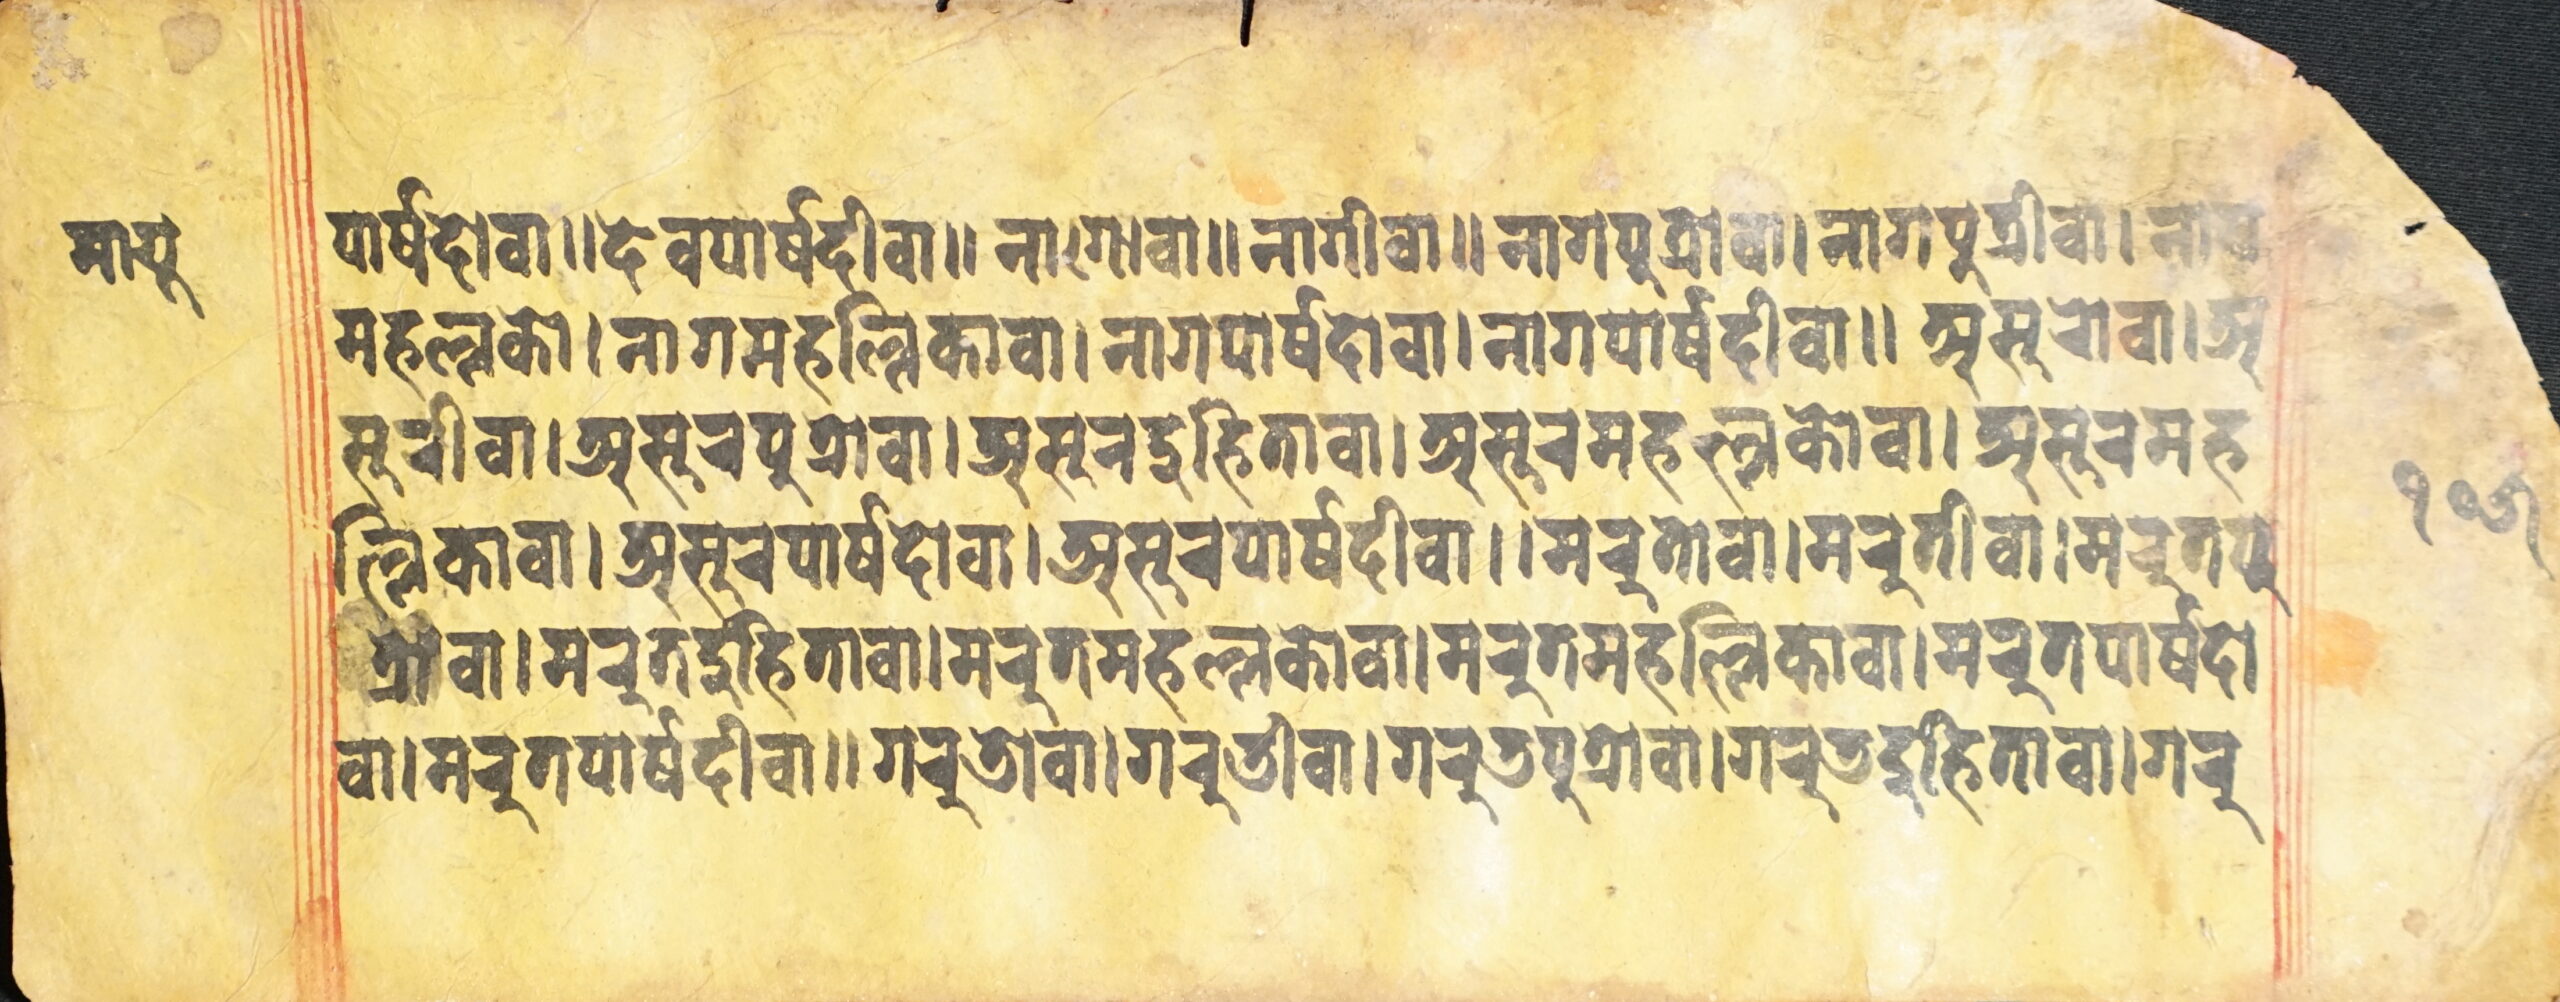 मायू
पार्षदोवा॥देवपार्षदीवा॥ नागोवा॥नागीवा॥नागपुत्रोवा।नागपुत्रीवा।नाग
महल्लको।नागमहल्लिकावा।नागपार्षदोवा।नागपार्षदीवा॥ असुरोवा।अ
सुरीवा।असुरपुत्रोवा।असुरदुहितावा।असुरमहल्लकोवा।असुरमह
ल्लिकावा।असुरपार्षदोवा।असुरपार्षदीवा।।मरुतोवा।मरुतीवा।मरुतपु
त्रोवा।मरुतदुहितावा।मरुतमहल्लकोवा।मरुतमहल्लिकावा।मरुतपार्षदो
वा।मरुतपार्षदीवा॥गरुडोवा।गरुडीवा।गरुडपुत्रोवा।गरुडदुहितावा।गरु